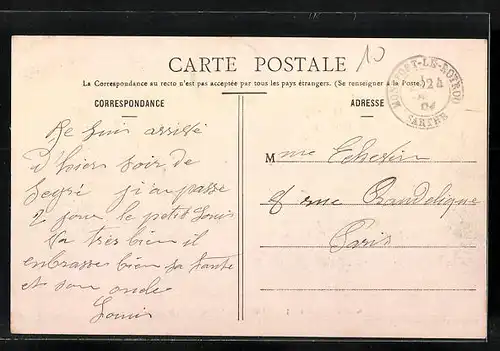 10
CARTE POSTALE
La Correspondance au recto n'est pas acceptée par tous les pays étrangers. (Se renseigner à la Poste.)
MONTFORT-LE-ROTROU
SARTHE
CORRESPONDANCE
ADRESSE
Je suis arrivé
d'hier soir de
Segré j'ai passé
2 jour le petit Louis
va très bien il
enbrasse bien sa tante
et son oncle
Louis
Mme
rue
Paris